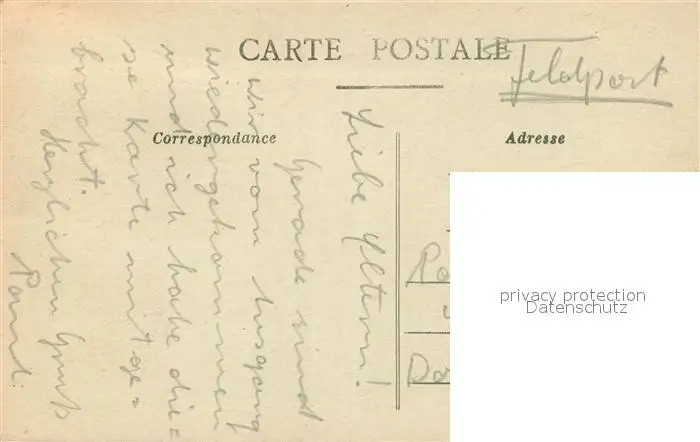 CARTE POSTALE
Feldpost
Correspondance
Adresse
Liebe Eltern!
Gerade sind
wir vom Ausgang
wiedergekommen
und ich habe die=
se Karte mitge=
bracht.
Herzlichen Gruß
Paul.
privacy protection
Datenschutz